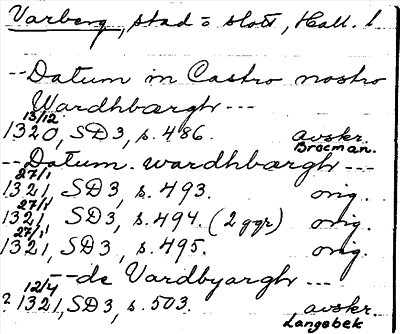 Varberg, stad o slott, Hall. l
-- Datum in Castro nostro
Wardhbærgh ---
13/12.
1320, SD3, s. 486. avskr.
Brocman.
-- Datum wardhbærgh ---
27/1
1321, SD3, s. 493. orig.
27/1
1321, SD3, s. 494. (2 ggr) orig.
27/1
1321, SD3, s. 495. orig.
-- de Vardbyargh ---
12/4
? 1321, SD3, s. 503. avskr.
Langebek